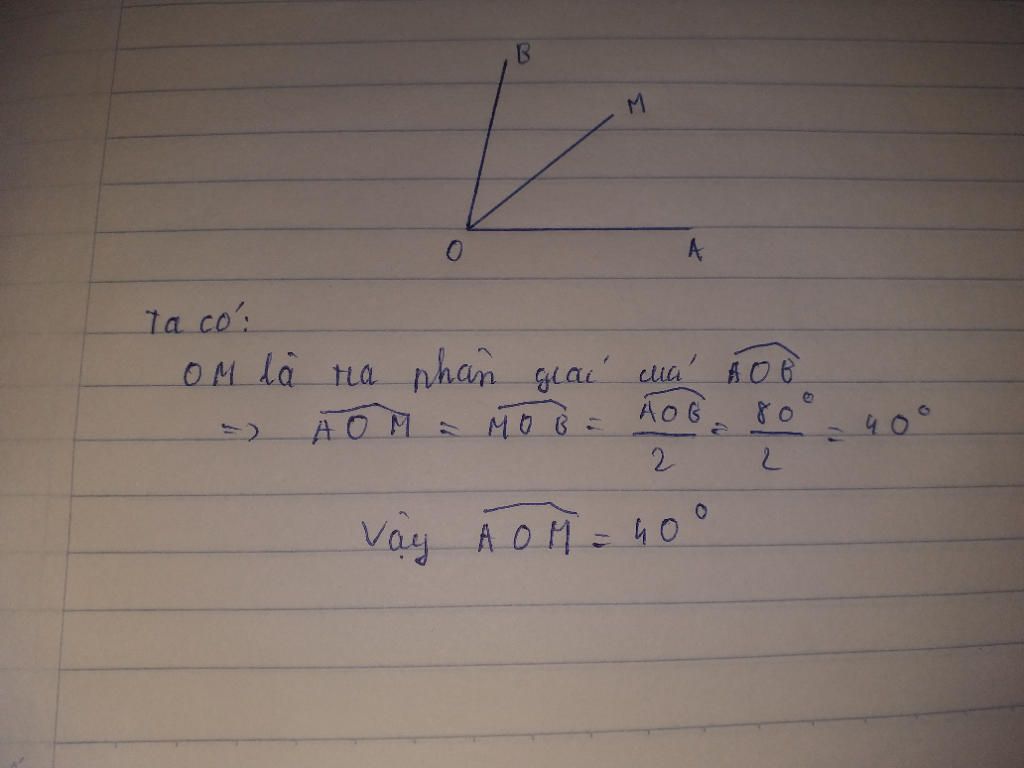 B
M
O
A
Ta có:
OM là tia phân giác của AOB
=> AOM = MOB = AOB/2 = 80°/2 = 40°
Vậy AOM = 40°